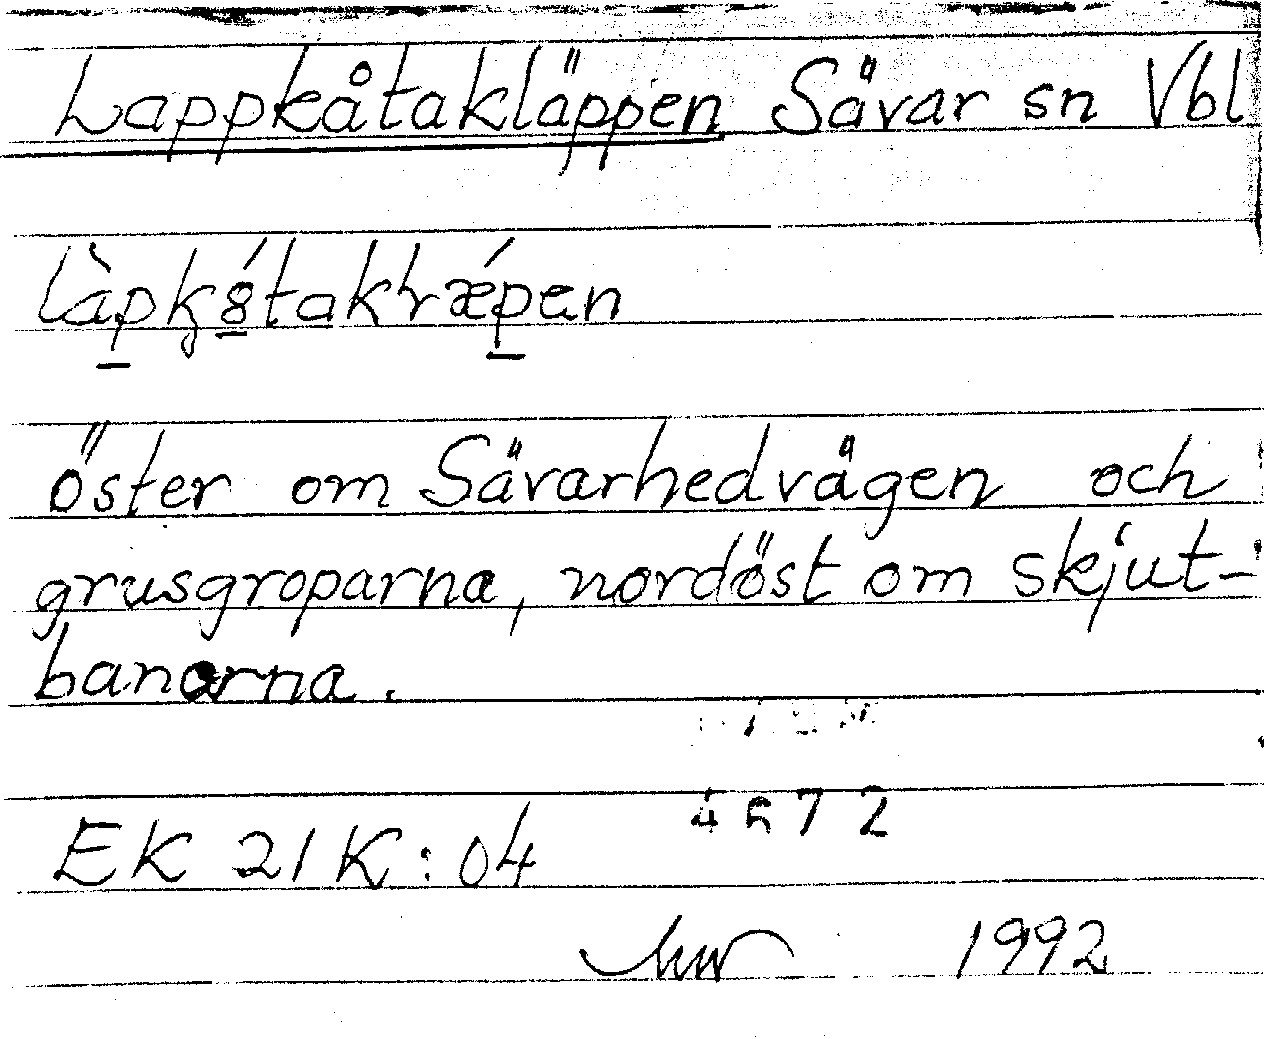 Lappkåtakläppen Sävar sn Vbl
öster om Sävarhedvägen och
grusgroparna, nordöst om skjut-
banorna.
EK 21K:04
1992